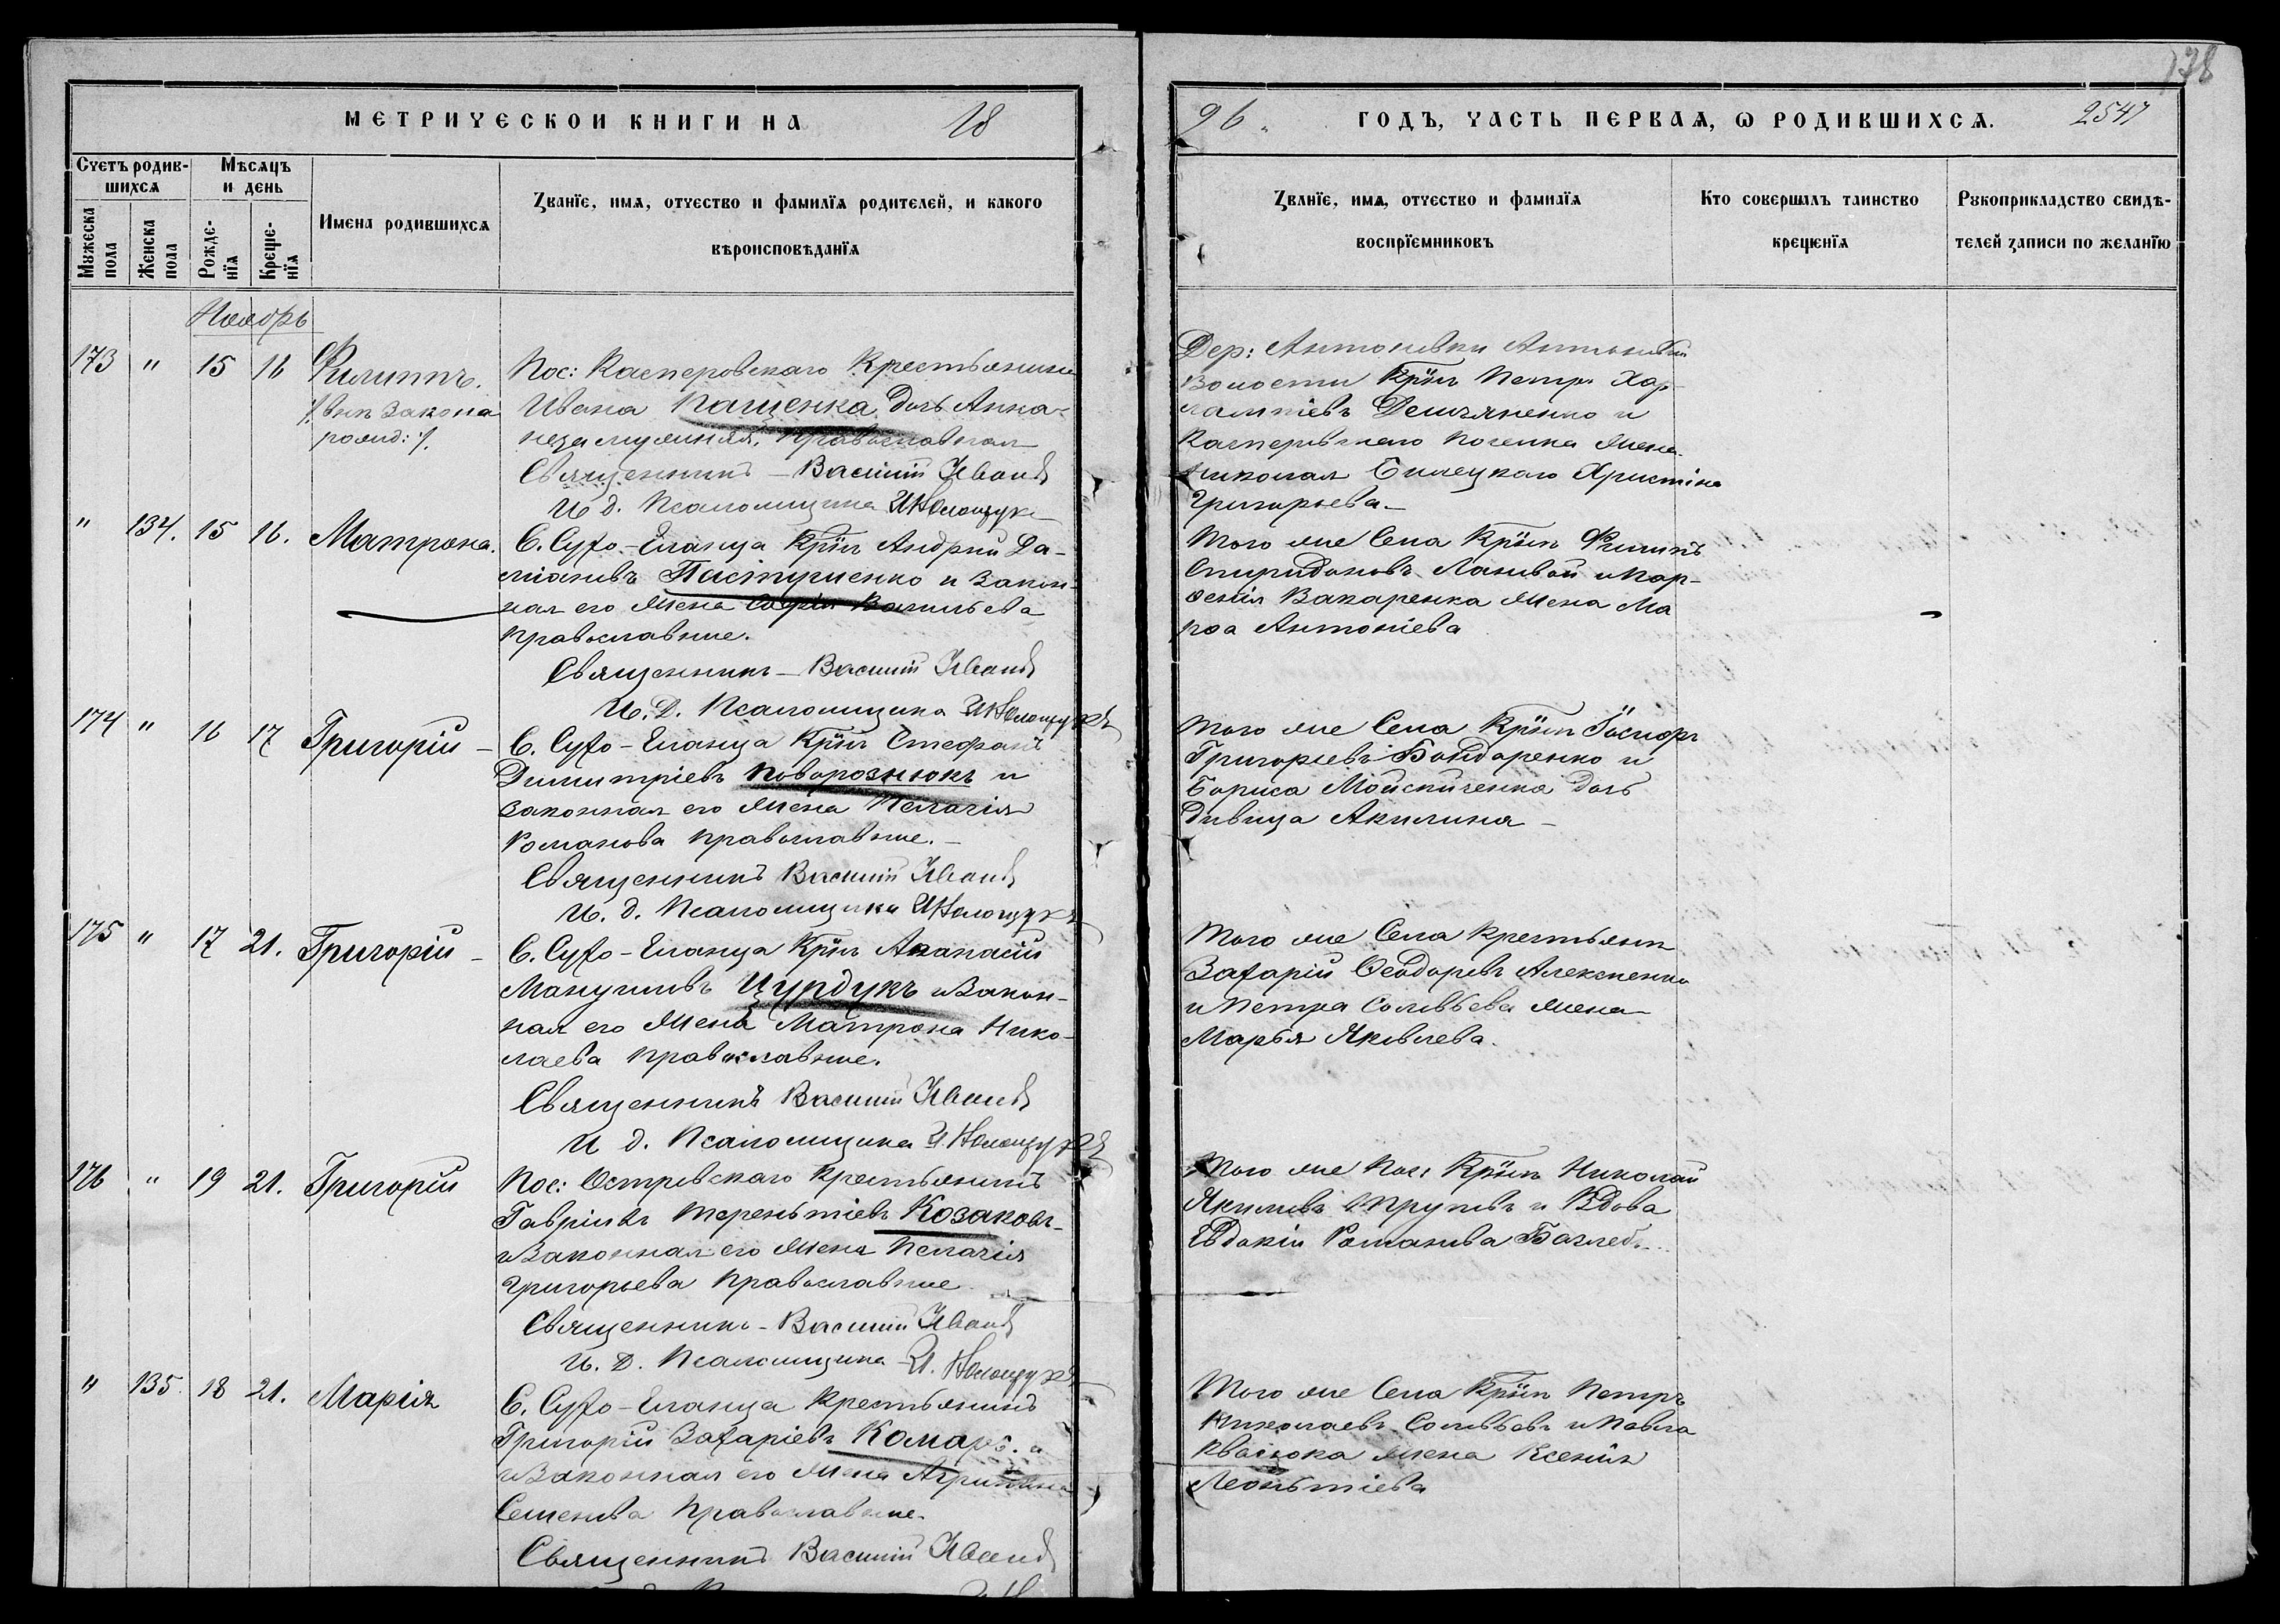 138
МЕТРИЧЕСКОИ КНИГИ НА 18
96 ГОДЪ, ЧАСТЬ ПЕРВАѦ, Ѡ РОДИВШИХСѦ. 2547
Счетъ родив-
шихсѧ
Мѣсѧцъ
и день
Мꙋжеска
пола
Женска
пола
Рожде-
нїѧ
Креще-
нїѧ
Имена родившихсѧ
Званїе, имѧ, отчество и фамилїѧ родителей, и какого
вѣроисповѣданїѧ
Званїе, имѧ, отчество и фамилїѧ
воспрїемниковъ
Кто совершалъ таинство
крещенїѧ
Рꙋкоприкладство свидѣ-
телей записи по желанїю
Ноябрь
173 " 15 16 Филиппъ.
/:внѣ закона
рожд:/.
Пос: Касперовскаго Крестьянина
Ивана Пащенка дочь Анна
незамужняя, православная
Священникъ – Василій Иванов
И д. Псаломщика И Колощук
Дер: Антоновки Антоновской
волости Крїнъ Петръ Хар-
лампіевъ Демяненко и
Касперовскаго поселка жена
Николая Билецкаго Христина
Григорьева –
" 134. 15 16. Матрона.
С. Сухо-Еланца Крїнъ Андрей Да-
міановъ Пастушенко и закон-
ная его жена Софія Васильева
православные.
Священникъ – Василій Иванов
И. Д. Псаломщика И Колощукъ
Того же Села Крїнъ Филипъ
Спиридоновъ Лановой и Пар-
фенія Вакаренка жена Ма
рѳа Антоніева
174 " 16 17 Григорій –
С. Сухо-Еланца Крїнъ Стефанъ
Димитріевъ Поворознюкъ и
законная его жена Пелагія
Романова православные. –
Священникъ Василій Иванов
И. д. Псаломщика И Колощукъ
Того же Села Крїнъ
Григорьевъ Бондаренко и
Бориса дочь
дивица Акилина –
175 " 17 21. Григорій –
С. Сухо-Еланца Крїнъ Аѳанасій
Мануиловъ Цурдукъ и закон-
ная его жена Матрона Нико-
лаева православные.
Священникъ Василій Иванов
И д. Псаломщика И. Колощукъ
Того же Села крестьянин
Захарій Ѳеодоровъ Алексеенко
и Петра Соловьева жена
Марья Яковлева.
176 " 19 21. Григорій
Пос: Островскаго Крестьянинъ
Гавріилъ Терентіевъ Козаковъ
и законная его жена Пелагія
Григорьева православные
Священникъ – Василій Иванов
И. Д. Псаломщика И. Колощукъ
Того же Пос: Крїнъ Николай
Якимовъ и вдова
Евдокія Романова
" 135. 18 21. Марія
С. Сухо-Еланца Крестьянинъ
Григорій Захаріевъ Комаръ. и
и законная его жена Агрипина
Семенова православные.
Священникъ Василій Иванов
Того же Села Крїнъ Петръ
Николаевъ Соловьевъ и Павла
Квасюка жена Ксенія
Леонтіева